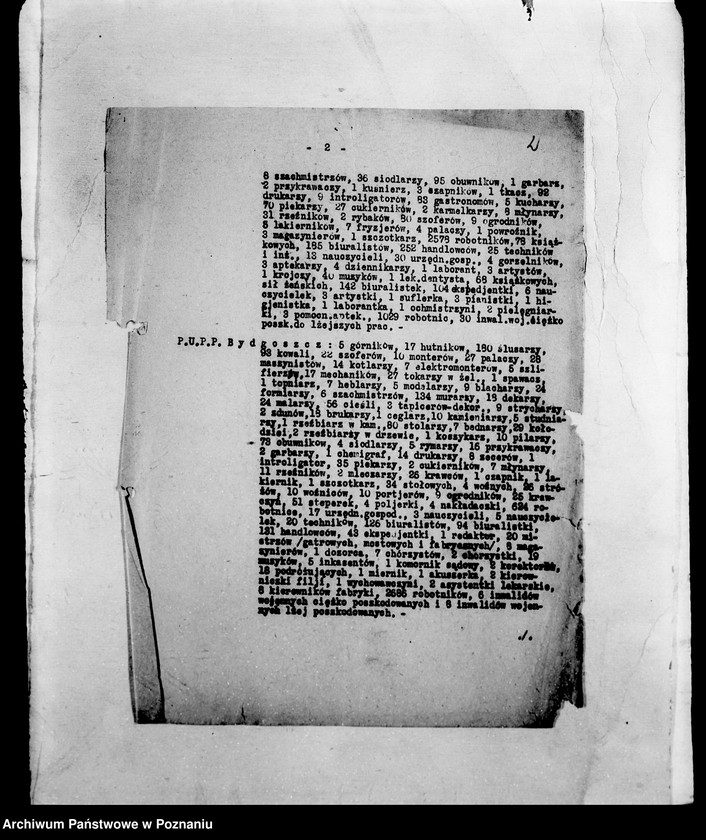 - 2 -
2
8 szachmistrzów, 36 siodlarzy, 95 obuwników, 1 garbarz,
2 przykrawaczy, 1 kuśnierz, 3 czapników, 1 tkacz, 92
drukarzy, 9 introligatorów, 83 gastronomów, 5 kucharzy,
70 piekarzy, 27 cukierników, 2 karmelkarzy, 8 młynarzy,
31 rzeźników, 2 rybaków, 80 szoferów, 9 ogrodników,
5 lakierników, 7 fryzjerów, 4 palaczy, 1 powroźnik,
3 magazynierów, 1 szczotkarz, 2578 robotników, 78 książ-
kowych, 185 biuralistów, 252 handlowców, 25 techników
i inż., 13 nauczycieli, 30 urzędn.gosp., 4 gorzelników,
3 aptekarzy, 4 dziennikarzy, 1 laborant, 3 artystów,
1 krojczy, 40 muzyków, 1 lek.dentysta, 68 książkowych,
sił żeńskich, 142 biuralistek, 104 ekspedjentki, 6 nau-
czycielek, 3 artystki, 1 suflerka, 3 pianistki, 1 hi-
gjenistka, 1 laborantka, 1 ochmistrzyni, 2 pielęgniar-
ki, 3 pomocn.aptek., 1029 robotnic, 30 inwal.woj.ciężko
poszk.do lżejszych prac. -
P.U.P.P. Bydgoszcz: 5 górników, 17 hutników, 180 ślusarzy,
93 kowali, 22 szoferów, 10 monterów, 27 palaczy, 28
maszynistów, 14 kotlarzy, 7 elektromonterów, 5 szli-
fierzy, 17 mechaników, 27 tokarzy w żel., 1 spawacz,
1 topniarz, 7 heblarzy, 5 modelarzy, 9 blacharzy, 24
formiarzy, 6 szachmistrzów, 134 murarzy, 18 dekarzy,
24 malarzy, 56 cieśli, 3 tapicerów-dekor., 9 strycharzy,
2 zdunów, 18 brukarzy, 1 ceglarz, 10 kamieniarzy, 5 studnia-
rzy, 1 rzeźbiarz w kam., 80 stolarzy, 7 bednarzy, 29 koło-
dziei, 2 rzeźbiarzy w drzewie, 1 koszykarz, 10 pilarzy,
73 obuwników, 4 siodlarzy, 5 rymarzy, 16 przykrawaczy,
2 garbarzy, 1 chemigraf, 14 drukarzy, 8 zecerów, 1
introligator, 35 piekarzy, 2 cukierników, 7 młynarzy,
11 rzeźników, 2 mleczarzy, 26 krawców, 1 czapnik, 1 la-
kiernik, 1 szczotkarz, 34 stołowych, 4 woźnych, 26 stró-
żów, 10 woźniców, 10 portjerów, 9 ogrodników, 25 kraw-
czyń, 51 steperek, 4 poljerki, 4 nakładaczki, 634 ro-
botnice, 17 urzędn.gospod., 3 nauczycieli, 5 nauczycie-
lek, 20 techników, 126 biuralistów, 94 biuralistki,
131 handlowców, 43 ekspedjentki, 1 redaktor, 20 mi-
strzów /gatrowych, mostowych i fabrycznych/, 8 maga-
zynierów, 1 dozorca, 7 chórzystów, 2 chórzystki, 19
muzyków, 5 inkasentów, 1 komornik sądowy, 2 korektorów,
18 podróżujących, 1 miernik, 1 akuszerka, 2 kierow-
niczki filji, 1 wychowawczyni, 2 asystentki lekarskie,
6 kierowników fabryki, 2686 robotników, 6 inwalidów
wojennych ciężko poszkodowanych i 6 inwalidów wojen-
nych lżej poszkodowanych. -
./.
Archiwum Państwowe w Poznaniu